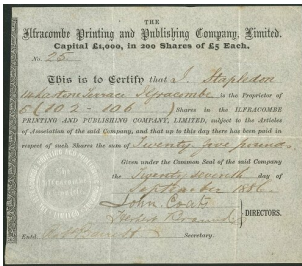 THE
Ilfracombe Printing and Publishing Company, Limited.
Capital £1,000, in 200 Shares of £5 Each.
No. 25
This is to Certify that J. Stapledon
Terrace Ilfracombe is the Proprietor of
5 (102-106) Shares in the ILFRACOMBE
PRINTING AND PUBLISHING COMPANY, LIMITED, subject to the Articles
of Association of the said Company, and that up to this day there has been paid
in respect of such Shares the sum of Twenty five pounds
Given under the Common Seal of the said Company
the Twenty seventh day of
September
John Coats
DIRECTORS.
Secretary.